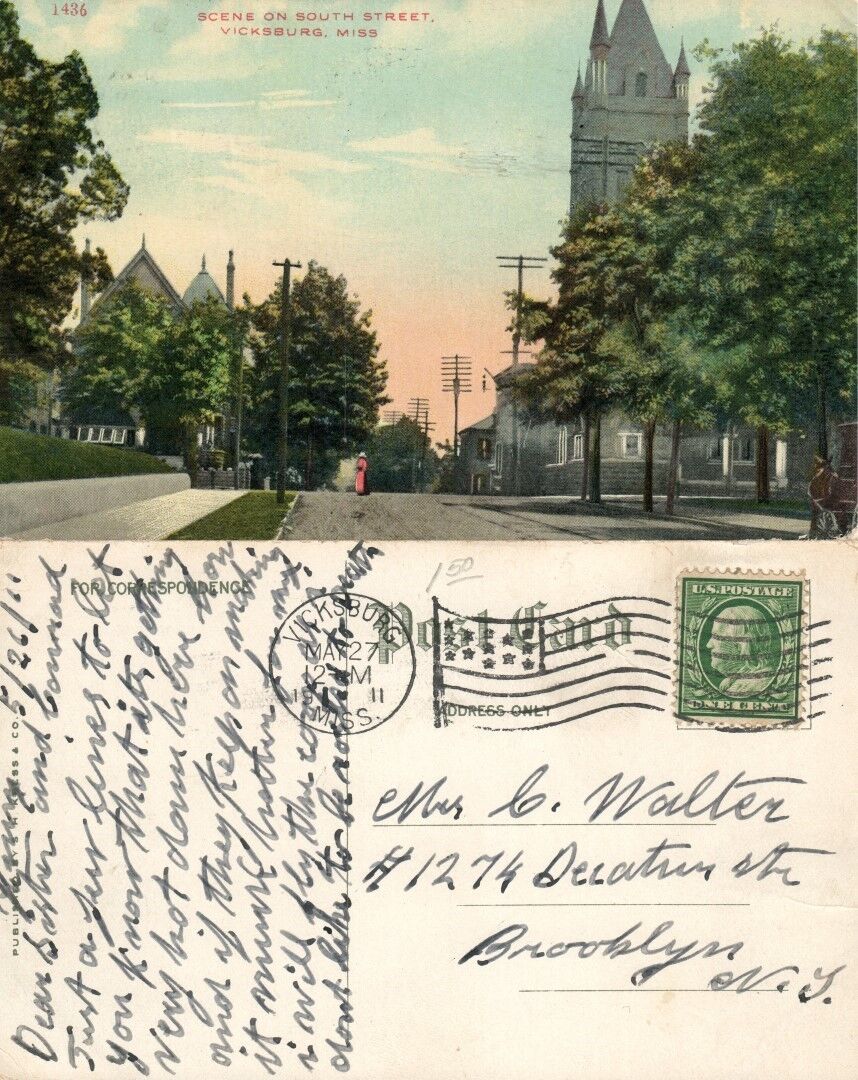 1436
SCENE ON SOUTH STREET,
VICKSBURG, MISS
FOR CORRESPONDENCE
1 50
Post Card
ADDRESS ONLY
U.S. POSTAGE
ONE CENT
VICKSBURG
MAY 27
12 M
1911
MISS.
5/26/11
Dear Sister and Conrad
Just a few lines to let
you know that its getting
very hot down here now
and if they keep on making
it much hotter
i will fly the coop
dont like to be
Mrs C. Walter
#1274 Decatur str
Brooklyn
N.Y.
PUBLISHED BY S. H. KRESS & CO.